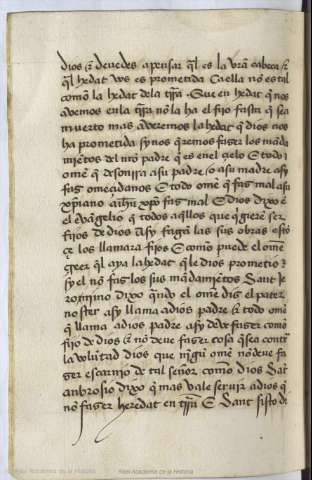 dios τ deuedes apensar q̃l es la vr̃a cabeça τ
q̃l hedat vos es prometida Ca ella nõ es tal
como la hedat dela tr̃ra. Que en hedat q̃ nos
auemos enla tr̃ra nõ la ha el fijo fasta q̃ sea
muerto mas aueremos la hedat q̃ dios nos
ha prometida sy nos q̃remos fazer los mãda
miẽtos del nr̃o padre q̃ es enel çielo E todo
ome q̃ desonrra asu padre / o asu madre asy
faz omeçidanos E todo ome q̃ faz mal asu
xp̃iano a ihũ xp̃o faz mal E dios dixo ẽ
el euãgelio q̃ todos aq̃llos que q̃sierẽ ser
fijos de dios Asy fagã las sus obras estõ
çe los llamara fijos E como puede el ome
creer q̃l aya la hedat q̃ le dios prometio
sy el nõ faz los sus mãdamiẽtos Sant Je
ronimo dixo qñdo el ome diz el pater
noster asy llama adios padre τ todo ome
q̃ llama adios padre asy deue fazer como
fijo de dios τ nõ deue fazer cosa q̃ sea contra
la volũtad dios que nĩgũ ome nõ deue fa
zer escarnio de tal señor como dios Sat
anbrosio dixo q̃ mas vale seruir adios q̃
nõ fazer heredat en tr̃ra E Sant sisto di
Real Academia de la Historia
Real Academia de la Historia